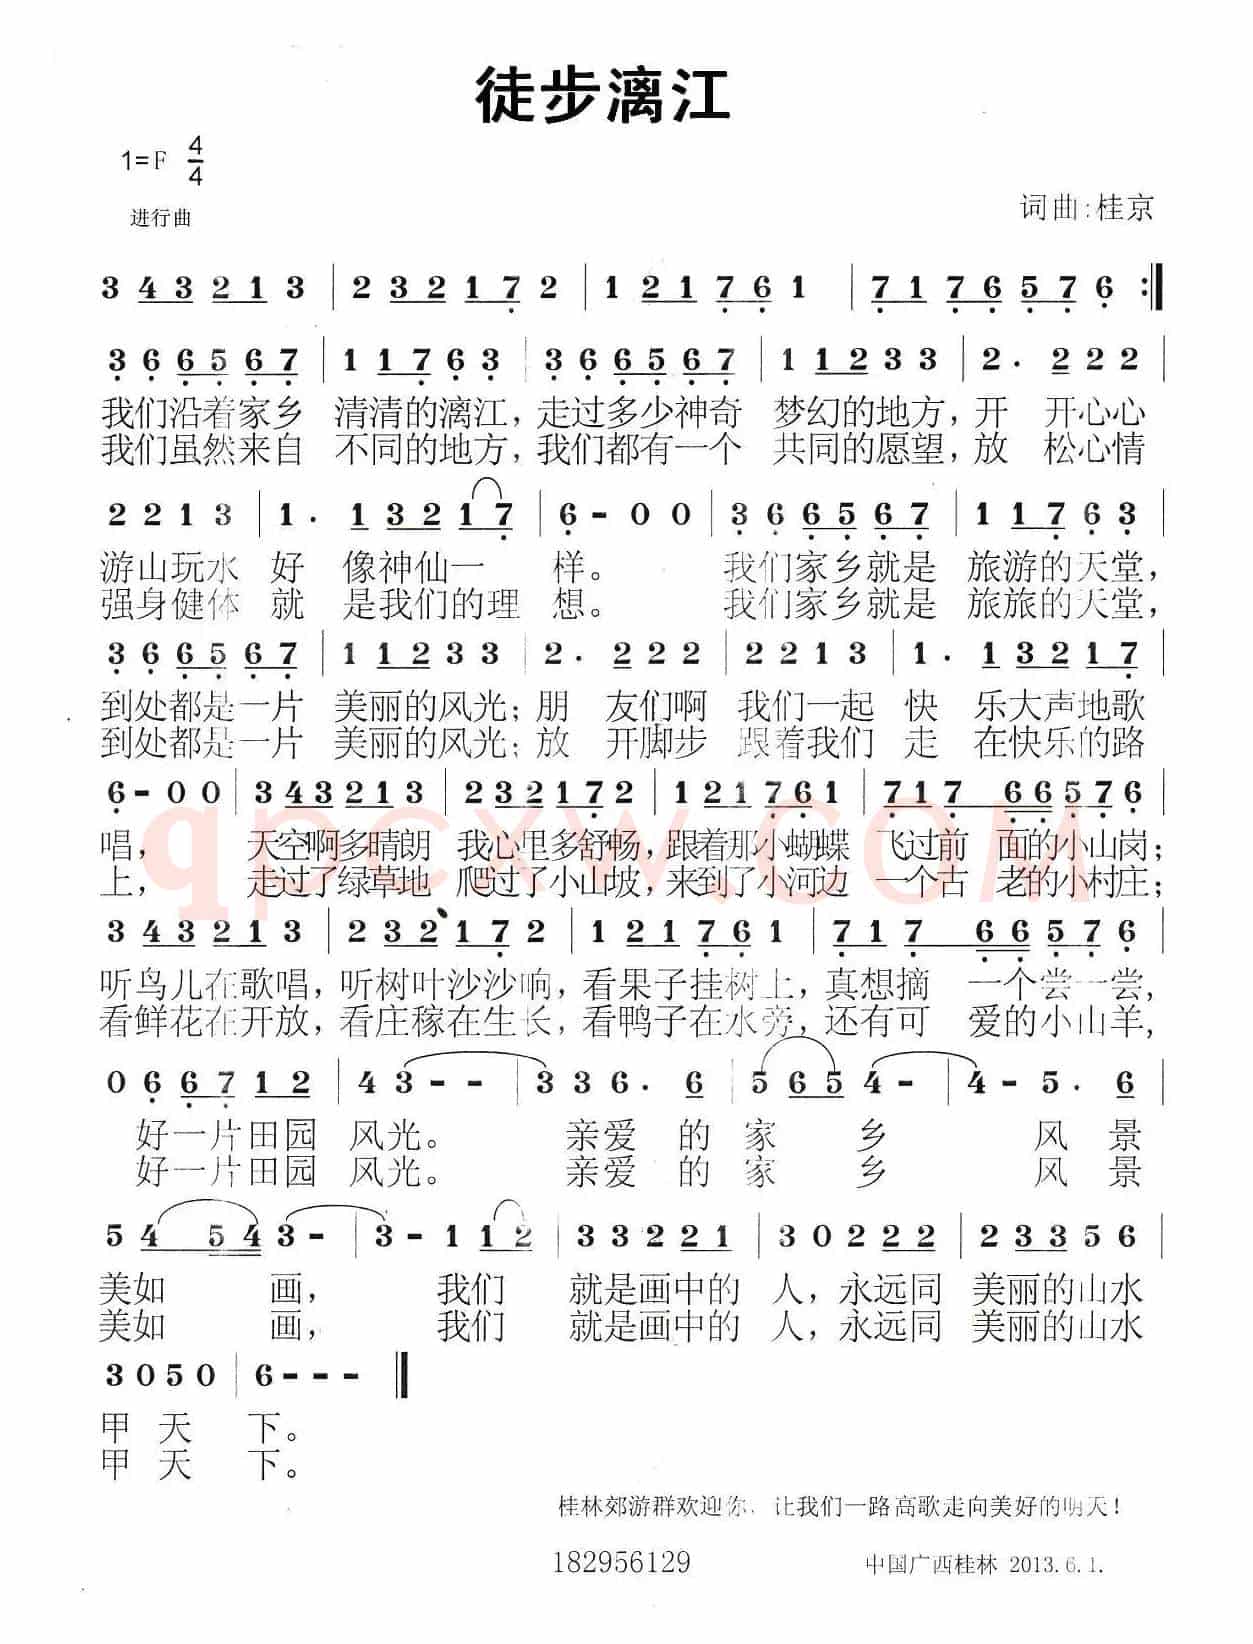 徒步漓江
1=F 4/4
进行曲
词曲:桂京
3 4 3 2 1 3 | 2 3 2 1 7 2 | 1 2 1 7 6 1 | 7 1 7 6 5 7 6 :‖
3 6 6 5 6 7 | 1 1 7 6 3 | 3 6 6 5 6 7 | 1 1 2 3 3 | 2 . 2 2 2 |
我们沿着家乡 清清的漓江，走过多少神奇 梦幻的地方，开 开心心
我们虽然来自 不同的地方，我们都有一个 共同的愿望，放 松心情
2 2 1 3 | 1 . 1 3 2 1 7 | 6 - 0 0 | 3 6 6 5 6 7 | 1 1 7 6 3 |
游山玩水 好 像神仙一 样。 我们家乡就是 旅游的天堂，
强身健体 就 是我们的理 想。 我们家乡就是 旅旅的天堂，
3 6 6 5 6 7 | 1 1 2 3 3 | 2 . 2 2 2 | 2 2 1 3 | 1 . 1 3 2 1 7
到处都是一片 美丽的风光；朋 友们啊 我们一起 快 乐大声地歌
到处都是一片 美丽的风光；放 开脚步 跟着我们 走 在快乐的路
6 - 0 0 | 3 4 3 2 1 3 | 2 3 2 1 7 2 | 1 2 1 7 6 1 | 7 1 7 6 6 5 7 6 |
唱， 天空啊多晴朗 我心里多舒畅，跟着那小蝴蝶 飞过前 面的小山岗；
上， 走过了绿草地 爬过了小山坡，来到了小河边 一个古 老的小村庄；
qpcxw.com
3 4 3 2 1 3 | 2 3 2 1 7 2 | 1 2 1 7 6 1 | 7 1 7 6 6 5 7 6 |
听鸟儿在歌唱，听树叶沙沙响，看果子挂树上，真想摘 一个尝一尝，
看鲜花在开放，看庄稼在生长，看鸭子在水旁，还有可 爱的小山羊，
0 6 6 7 1 2 | 4 3 - - | 3 3 6 . 6 | 5 6 5 4 - | 4 - 5 . 6
好一片田园 风光。 亲爱 的 家 乡 风 景
好一片田园 风光。 亲爱 的 家 乡 风 景
5 4 5 4 3 - | 3 - 1 1 2 | 3 3 2 2 1 | 3 0 2 2 2 | 2 3 3 5 6 |
美如 画， 我们 就是画中的 人，永远同 美丽的山水
美如 画， 我们 就是画中的 人，永远同 美丽的山水
3 0 5 0 | 6 - - - ‖
甲 天 下。
甲 天 下。
桂林郊游群欢迎你，让我们一路高歌走向美好的明天！
182956129
中国广西桂林 2013.6.1.